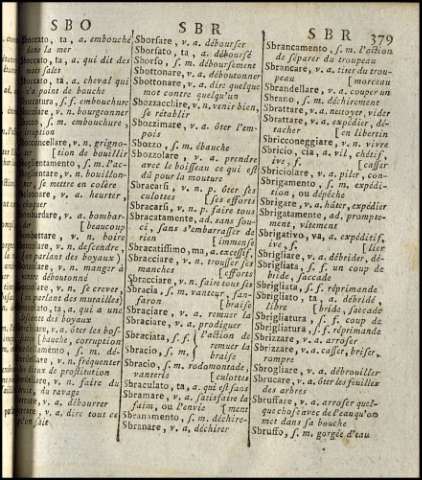 SBO
SBR
SBR 379
, ta, a. embouché
dans la mer
, ta, a. qui dit des
mots sales
, ta, a. cheval qui
n'a point de bouche
, s. f. embouchure
, v. n. bourgeonner
, s. m. embouchure,
éruption
, v. n. grigno-
[ ion de bouillir
, s. m. l'ac-
, v. n. bouillon-
ner, se mettre en colère
, v. a. heurter,
choquer
, v. a. bombar-
der [ beaucoup
, v. n. boire
, v. n. descendre,
(en parlant des boyaux)
, v. n. manger à
ventre déboutonné
, v. n. se crever,
(en parlant des murailles)
, ta, a. qui a une
des boyaux
, v. a. ôter les bo-
[ bauche, corruption
, s. m. dé-
, v. n. fréquenter
les lieux de prostitution
, v. n. faire du
, du ravage
, v. a. débourrer
, v. a. dire tout ce
qu'on fait
Sborsare, v. a. débourser
Sborsato, ta, a. déboursé
Sborso, s. m. déboursement
Sbottonare, v. a. déboutonner
Sbottonare, v. a. dire quelque
mot contre quelqu'un
Sbozzacchire, v. n. venir bien,
se rétablir
Sbozzimare, v. a. ôter l'em-
pois
Sbozzo, s. m. ébauche
Sbozzolare, v. a. prendre
avec le boisseau ce qui est
dû pour la mouture
Sbracarsi, v. n. p. ôter ses
culottes [ ses efforts
Sbracarsi, v. n. p. faire tous
Sbracatamente, ad. sans sou-
ci, sans s'embarrasser de
rien [ immense
Sbracatissimo, ma, a. excessif,
Sbracciare, v. a. trousser les
manches [ efforts
Sbracciare, v. n. faire tous ses
Sbracia, s. m. vanteur, fan-
faron [ braise
Sbraciare, v. a. remuer la
Sbraciare, v. a. prodiguer
Sbraciata, s. f. { l'action de
remuer la
Sbracio, s. m. { braise
Sbracio, s. m. rodomontade,
vanterie [ culottes
Sbraculato, ta, a. qui est sans
Sbramare, v. a. satisfaire la
faim, ou l'envie [ ment
Sbranamento, s. m. déchire-
Sbranare, v. a. déchirer
Sbrancamento, s. m. l'action
de séparer du troupeau
Sbrancare, v. a. tirer du trou-
peau [ morceau
Sbrandellare, v. a. couper un
Sbrano, s. m. déchirement
Sbrattare, v. a. nettoyer, vider
Sbrattare, v. a. expédier, dé-
tacher [ en libertin
Sbricconeggiare, v. n. vivre
Sbricio, cia, a. vil, chétif,
ive, f. [ casser
Sbriciolare, v. a. piler, con-
Sbrigamento, s. m. expédi-
tion, ou dépêche
Sbrigare, v. a. hâter, expédier
Sbrigatamente, ad. prompte-
ment, vitement
Sbrigativo, va, a. expéditif,
ive, f. [ lier
Sbrigliare, v. a. débrider, dé-
Sbrigliata, s. f. un coup de
bride, saccade
Sbrigliata, s. f. réprimande
Sbrigliato, ta, a. débridé,
libre [ bride, saccade
Sbrigliatura, s. f. coup de
Sbrigliatura, s. f. réprimande
Sbrizzare, v. a. arroser
Sbrizzare, v. a. casser, briser,
rompre
Sbrogliare, v. a. débrouiller
Sbrucare, v. a. ôter les feuilles
des arbres
Sbruffare, v. a. arroser quel-
que chose avec de l'eau qu'on
met dans sa bouche
Sbruffo, s. m. gorgée d'eau